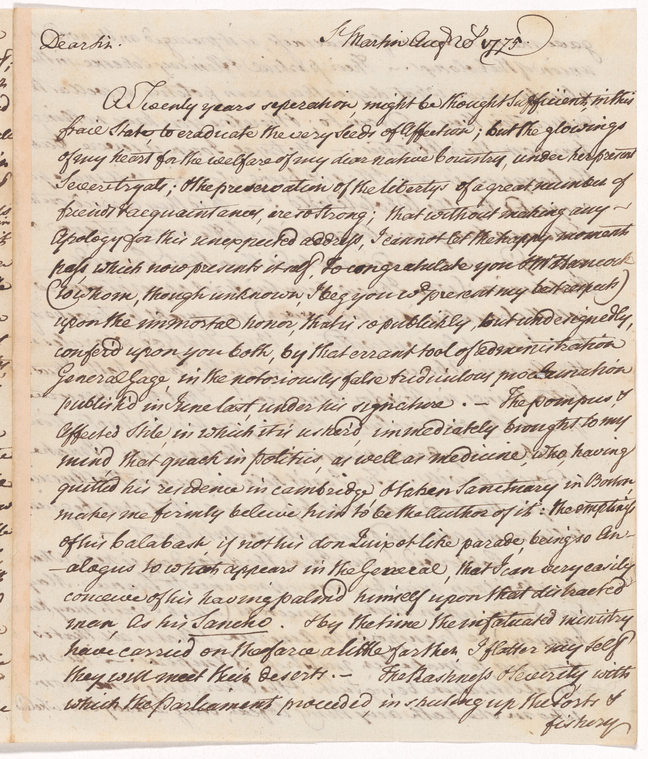 Dear Sir. St Martin Augt 28t 1775
A Twenty years seperation, might be thought Sufficient, in this
frail State, to eradicate the very Seeds of Affection; but the glowings
of my heart for the welfare of my dear native Country, under her present
Severe tryals; & the preservation of the libertys of a great number of
friends & acquaintance, are so strong; that without making any
Apology for this unexpected address, I cannot let the happy moment
pass which now presents itself, to congratulate you & Mr Hancock
(to whom, though unknown, I beg you wd present my best respects)
upon the immortal honor, that is so publickly, but undesignedly,
confer'd upon you both, by that errant tool of administration
General Gage, in the notoriously false & ridiculous proclamation
publish'd in June last under his signature. — The pompus &
Affected Stile in which it is usher'd, immediately brought to my
mind that quack in politics, as well as medicine, who, having
quitted his residence in Cambridge & taken Sanctuary in Boston,
makes me formly believe him to be the author of it: the emptings
of his Calabash, if not his don Quixot like parade, being so An-
-alogus to what appears in the General, that I can very easily
conceive of his having palm'd himself upon that distracted
man, as his Sancho. & by the time the infatuated ministry
have carried on the farce a little farther, I flatter my self
they will meet their deserts. — The Rashness & Severity with
which the Parliament proceded in shuting up the Ports &
fishery